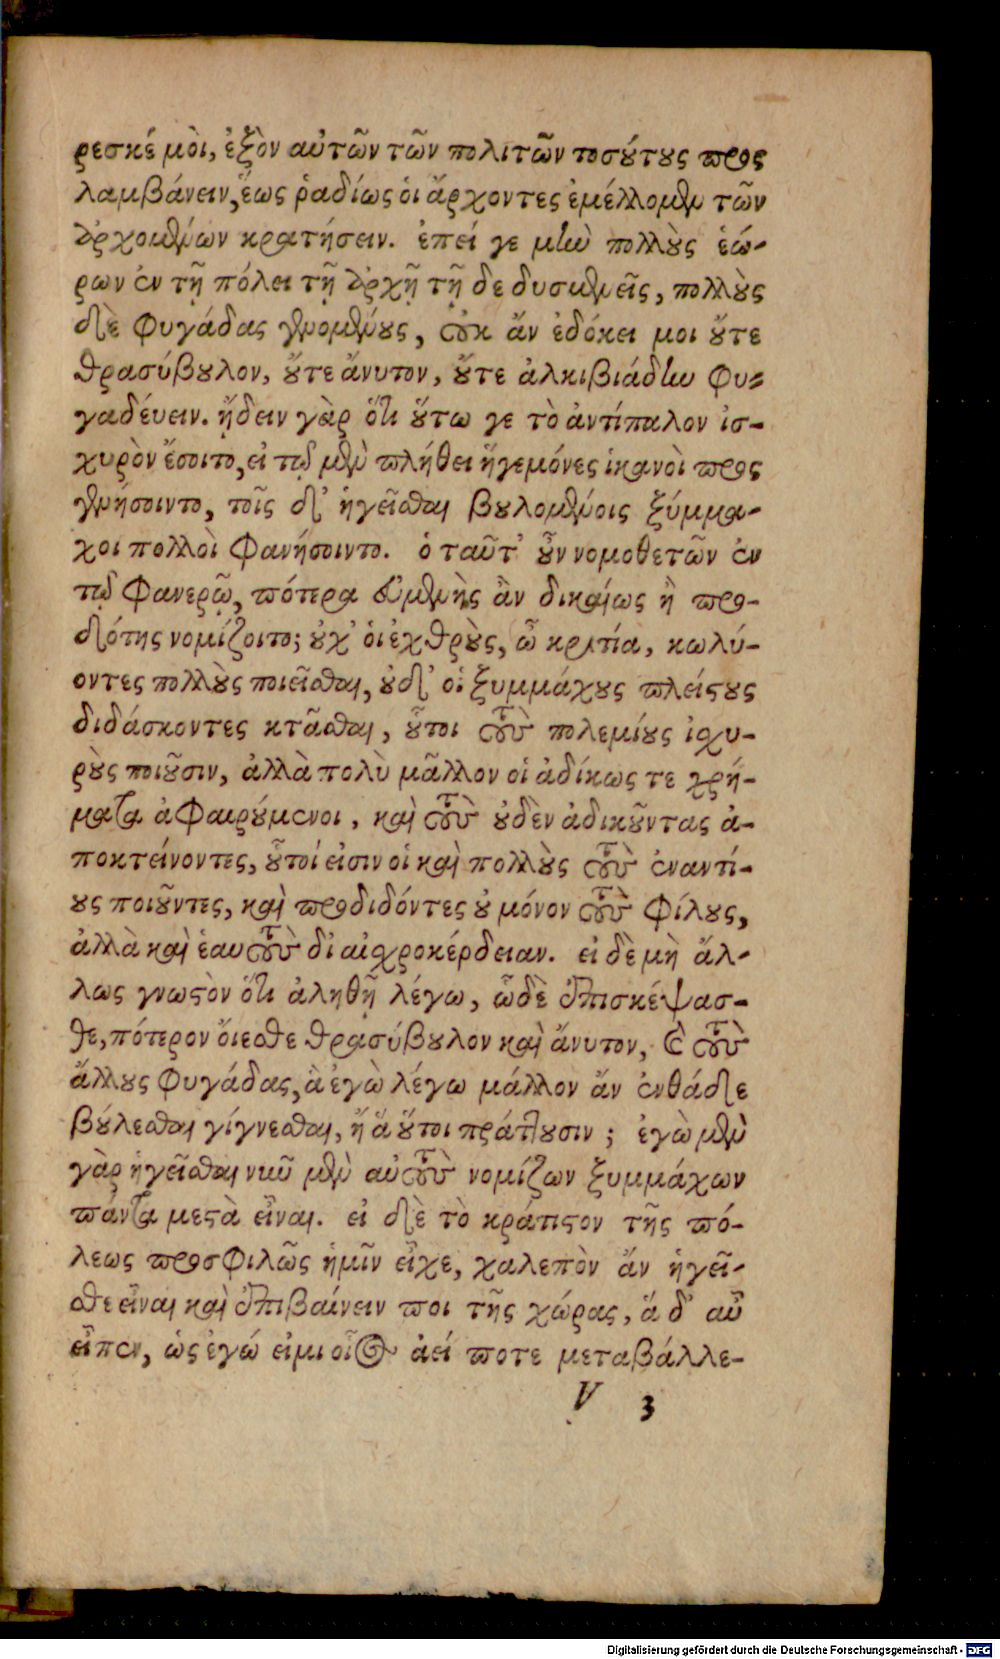 ρεσκέ μὸι, ἐξὸν αὐτῶν τῶν πολιτῶν τοσούτους προς
λαμβάνειν, ἕως ῥαδίως ὁι ἄρχοντες ἐμέλλομεν τῶν
ἀρχομένων κρατήσειν. ἐπεί γε μὴν πολλοὺς ἑώ-
ρων ἐν τῇ πόλει τῇ ἀρχῇ τῇ δε δυσμενεῖς, πολλοὺς
δὲ φυγάδας γενομένους, οὐκ ἄν ἐδόκει μοι οὔτε
θρασύβουλον, οὔτε ἄνυτον, οὔτε ἀλκιβιάδην φυ-
γαδέυειν. ᾔδειν γὰρ ὅτι οὕτω γε τὸ ἀντίπαλον ἰσ-
χυρὸν ἔσοιτο, εἰ τῷ μὲν πλήθει ἡγεμόνες ἱκανοὶ προς
γενήσοιντο, τοῖς δ' ἡγεῖσθαι βουλομένοις ξύμμα-
χοι πολλοὶ φανήσοιντο. ὁ ταῦτ' οὖν νομοθετῶν ἐν
τῷ φανερῷ, πότερα εὐμενὴς ἂν δικαίως ἢ προ-
δότης νομίζοιτο; οὐχ' ὁι ἐχθροὺς, ὦ κριτία, κωλύ-
οντες πολλοὺς ποιεῖσθαι, οὐδ' οἱ ξυμμάχους πλείστους
διδάσκοντες κτᾶσθαι, οὗτοι τοὺς πολεμίους ἰσχυ-
ροὺς ποιοῦσιν, ἀλλὰ πολὺ μᾶλλον οἱ ἀδίκως τε χρή-
ματα ἀφαιρούμενοι, καὶ τοὺς οὐδὲν ἀδικοῦντας ἀ-
ποκτείνοντες, οὗτοί εἰσιν οἱ καὶ πολλοὺς τοὺς ἐναντί-
ους ποιοῦντες, καὶ προδιδόντες οὐ μόνον τοὺς φίλους,
ἀλλὰ καὶ ἑαυτοὺς δι' αἰσχροκέρδειαν. εἰ δὲ μὴ ἄλ-
λως γνωστὸν ὅτι ἀληθῆ λέγω, ὧδὲ ἐπισκέψασ-
θε, πότερον ὄιεσθε θρασύβουλον καὶ ἄνυτον, καὶ τοὺς
ἄλλους φυγάδας, ἃ ἐγὼ λέγω μάλλον ἄν ἐνθάδε
βούλεσθαι γίγνεσθαι, ἤ ἅ οὕτοι πράττουσιν; ἐγὼ μὲν
γὰρ ἡγεῖσθαι νῦν μὲν αὐτοὺς νομίζων ξυμμάχων
πάντα μεστὰ εἶναι. εἰ δὲ τὸ κράτιστον τῆς πό-
λεως προσφιλῶς ἡμῖν εἶχε, χαλεπὸν ἄν ἡγεῖ-
σθε εἶναι καὶ ἐπιβαίνειν ποι τῆς χώρας, ἅ δ' αὖ
εἶπεν, ὡς ἐγώ εἰμι οἷος ἀεί ποτε μεταβάλλε-
V 3
Digitalisierung gefördert durch die Deutsche Forschungsgemeinschaft - DFG